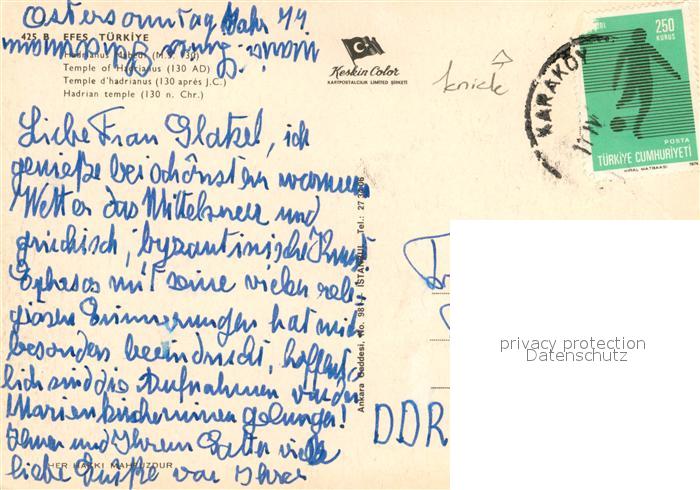 Ostersonntag Jahr 77
425 B EFES TÜRKİYE
Hadrianus Mabedi (M.S. 130)
Temple of Hadrianus (130 AD)
Temple d'hadrianus (130 aprés J.C.)
Hadrian temple (130 n. Chr.)
Keskin Color
KARTPOSTALCILIK LIMITED ŞİRKETİ
knick
KARAKÖY
250
KURUŞ
POSTA
TÜRKİYE CUMHURİYETİ
Liebe Frau Glatzel, ich
genieße bei schönstem warmen
Wetter das Mittelmeer und
griechisch, byzantinische Kunst!
Ephesos mit seine vielen reli-
giösen Erinnerungen hat mich
besonders beeindruckt, hoffent-
lich sind die Aufnahmen von den
Marienkirchenruinen gelungen!
Ihnen und Ihrem Gatten viele
liebe Grüße von Ihrer
HER HAKKI MAHFUZDUR
Ankara Caddesi, No. 98 İSTANBUL Tel.: 27
DDR
privacy protection
Datenschutz